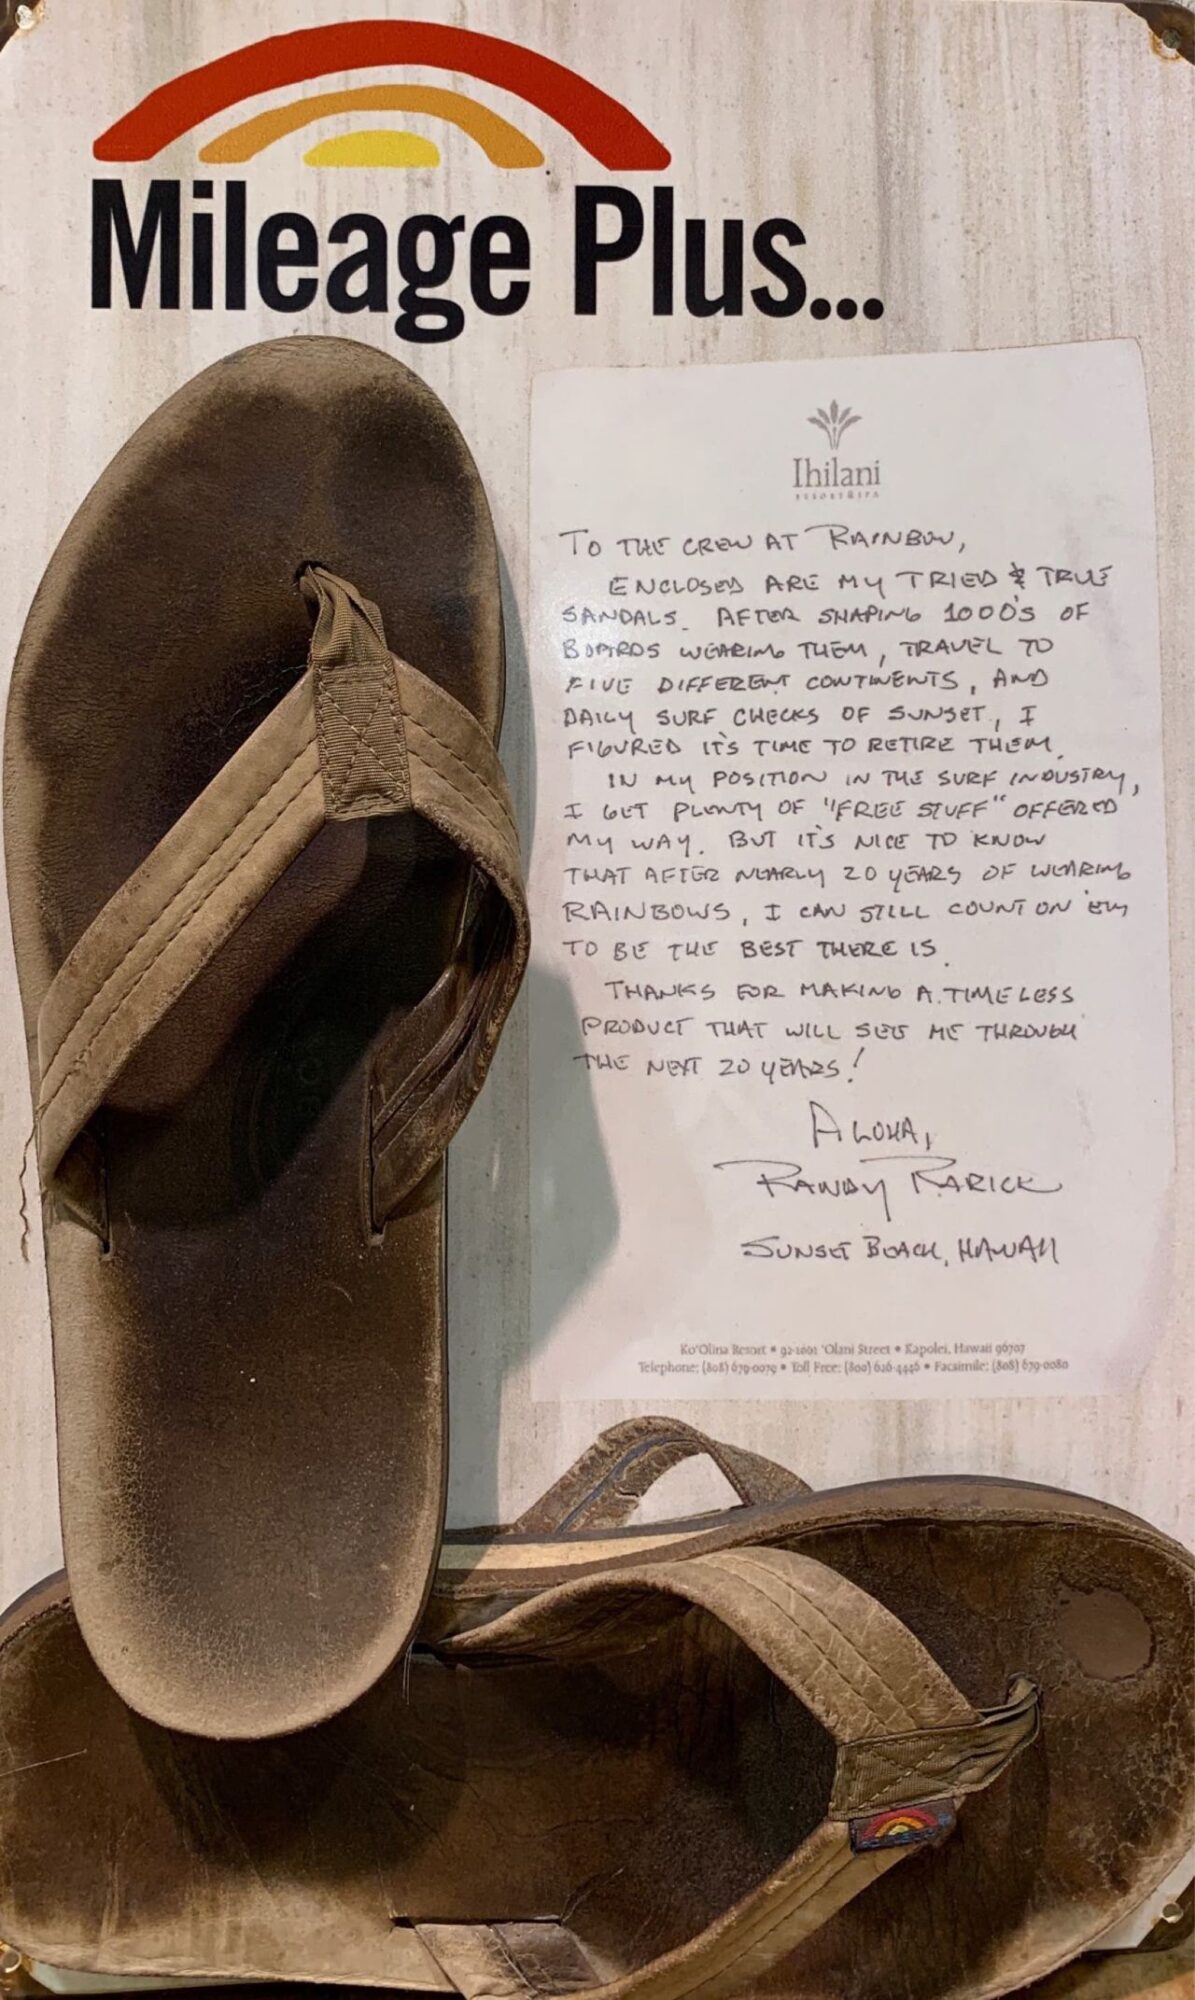 Mileage Plus...
Ihilani
RESORT & SPA
TO THE CREW AT RAINBOW,
ENCLOSED ARE MY TRIED & TRUE
SANDALS. AFTER SHAPING 1000'S OF
BOARDS WEARING THEM, TRAVEL TO
FIVE DIFFERENT CONTINENTS, AND
DAILY SURF CHECKS OF SUNSET, I
FIGURED IT'S TIME TO RETIRE THEM.
IN MY POSITION IN THE SURF INDUSTRY,
I GET PLENTY OF "FREE STUFF" OFFERED
MY WAY. BUT IT'S NICE TO KNOW
THAT AFTER NEARLY 20 YEARS OF WEARING
RAINBOWS, I CAN STILL COUNT ON 'EM
TO BE THE BEST THERE IS.
THANKS FOR MAKING A TIMELESS
PRODUCT THAT WILL SEE ME THROUGH
THE NEXT 20 YEARS!
ALOHA,
RANDY RARICK
SUNSET BEACH, HAWAII
Ko'Olina Resort • 92-1001 'Olani Street • Kapolei, Hawaii 96707
Telephone: (808) 679-0079 • Toll Free: (800) 626-4446 • Facsimile: (808) 679-0080